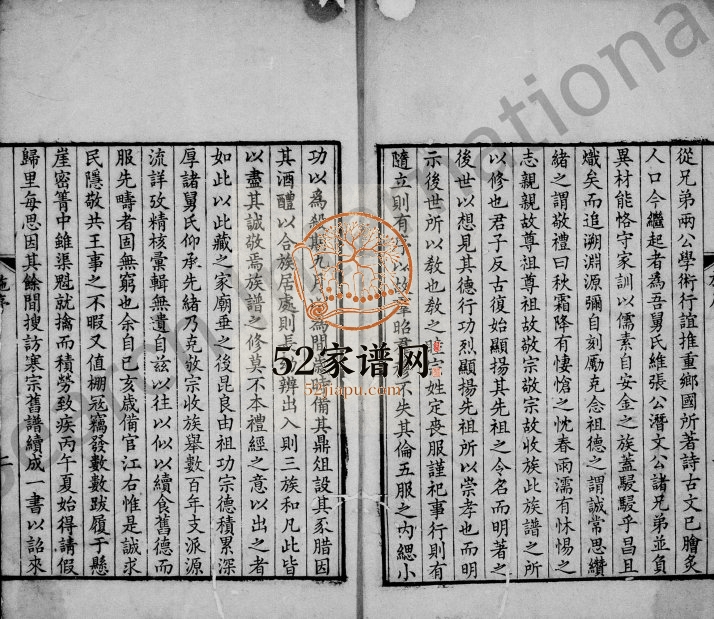 從兄弟兩公學術行誼推重鄉國所著詩古文已膾炙
人口今繼起者為吾舅氏維張公潛文公諸兄弟並負
異材能恪守家訓以儒素自安金之族蓋駸駸乎昌且
熾矣而追溯淵源彌自刻勵克念祖德之謂誠常思纘
緒之謂敬禮曰秋霜降有悽愴之忱春雨濡有怵惕之
志親親故尊祖尊祖故敬宗敬宗故收族此族譜之所
以修也君子反古復始顯揚其先祖之令名而明著之
後世以想見其德行功烈顯揚先祖所以崇孝也而明
示後世所以教也教之時宗姓定喪服謹祀事行則有
隨立則有序以故章昭不失其倫五服之內緦小
功以為紀期九月以為間歲時備其鼎俎設其豕腊因
其酒醴以合族居處則長辨出入則三族和凡此皆
以盡其誠敬焉族譜之修莫不本禮經之意以出之者
如此以此藏之家廟垂之後昆良由祖功宗德積累深
厚諸舅氏仰承先緒乃克敬宗收族舉數百年支派源
流詳攷精核彙輯無遺自茲以往以似以續食舊德而
服先疇者固無窮也余自己亥歲備官江右惟是誠求
民隱敬共王事之不暇又值棚寇竊發數數跋履于懸
崖密箐中雖渠魁就擒而積勞致疾丙午夏始得請假
歸里每思因其餘閒搜訪寒宗舊譜續成一書以詔來
52家谱网
52jiapu.com